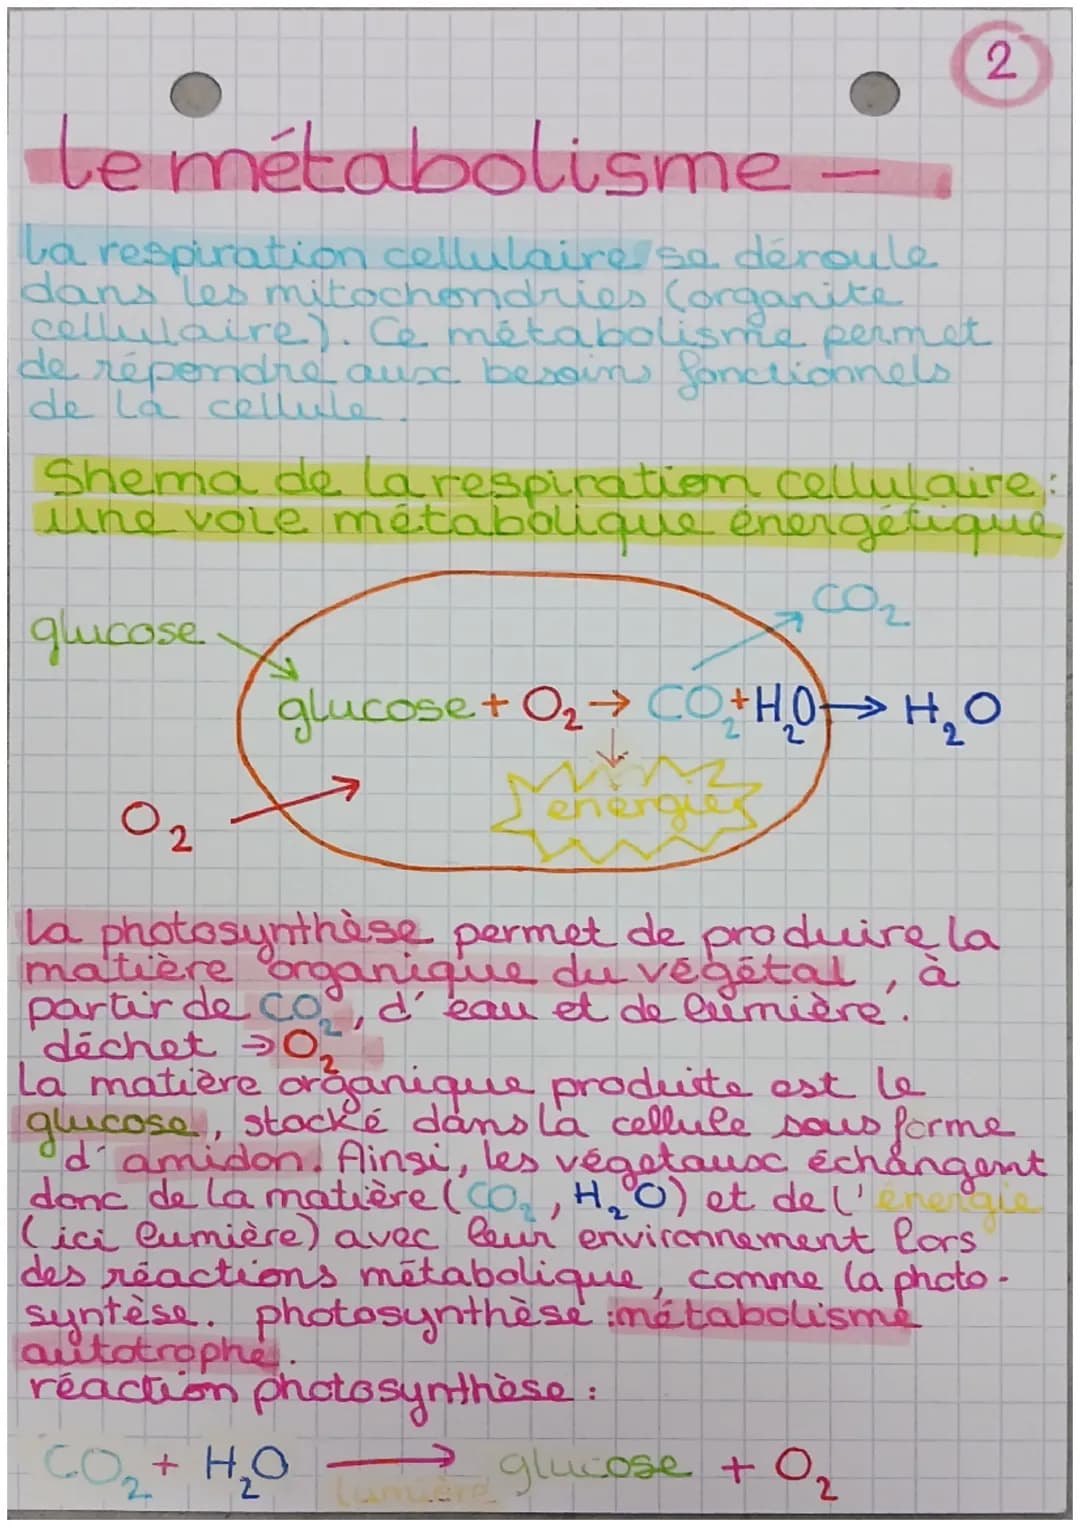 2
Le métabolisme -
La respiration cellulaire se déroule
dans les mitochondries (organite
cellulaire). Ce métabolisme permet
de répondre aux besoins fonctionnels
de la cellule.
Shema de la respiration cellulaire :
une voie métabolique énergétique
CO₂
glucose
glucose + O₂ → CO₂ + H₂O → H₂O
énergie
O₂
La photosynthèse permet de produire la
matière organique du végétal, à
partir de CO₂, d'eau et de lumière.
déchet → O₂
La matière organique produite est le
glucose, stocké dans la cellule sous forme
d'amidon. Ainsi, les végétaux échangent
donc de la matière (CO₂, H₂O) et de l'énergie
(ici lumière) avec leur environnement lors
des réactions métabolique, comme la photo-
syntèse. photosynthèse : métabolisme
autotrophe.
réaction photosynthèse :
CO₂ + H₂O → glucose + O₂
lumière